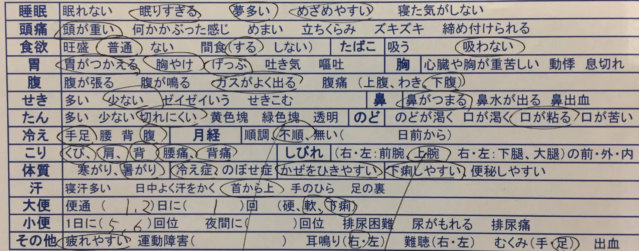 睡眠 眠れない 眠りすぎる 夢多い めざめやすい 寝た気がしない
頭痛 頭が重い 何かかぶった感じ めまい 立ちくらみ ズキズキ 締め付けられる
食欲 旺盛 普通 ない 間食(する しない) たばこ 吸う 吸わない
胃 胃がつかえる 胸やけ げっぷ 吐き気 嘔吐 胸 心臓や胸が重苦しい 動悸 息切れ
腹 腹が張る 腹が鳴る ガスがよく出る 腹痛(上腹、わき、下腹)
せき 多い 少ない ゼイゼイいう せきこむ 鼻 鼻がつまる 鼻水が出る 鼻出血
たん 多い 少ない 切れにくい 黄色塊 緑色塊 透明 のど のどが渇く 口が渇く 口が粘る 口が苦い
冷え 手足 腰 背 腹 月経 順調、不順、無い( 日前から)
こり くび、肩、背 腰痛、背痛 しびれ (右・左:前腕、上腕 右・左:下腿、大腿)の前・外・内
体質 寒がり、暑がり 冷え症、のぼせ症 かぜをひきやすい 下痢しやすい、便秘しやすい
汗 寝汗多い 日中よく汗をかく 首から上 手のひら 足の裏
大便 便通(1,2)日に(1)回 (硬、軟、下痢)
小便 1日に(5,6)回位 夜間に( )回位 排尿困難 尿がもれる 排尿痛
その他 疲れやすい 運動障害( ) 耳鳴り(右・左) 難聴(右・左) むくみ(手・足) 出血